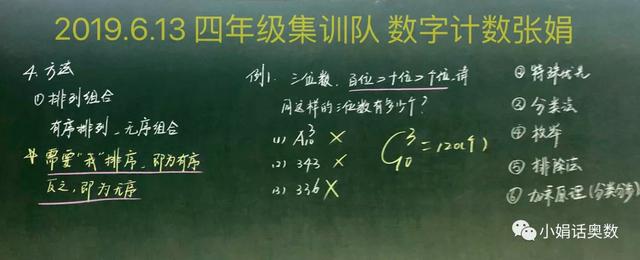 2019.6.13 四年级集训队 数字计数张娟
4. 方法
① 排列组合
有序排列、无序组合
☆ 需要"我"排序,即为有序
反之,即为无序
例1. 三位数,百位>十位>个位.请
问这样的三位数有多少个?
(1) A₁₀³ ×
(2) 343 ×
(3) 336 ×
C₁₀³=120(个)
② 特殊优先
③ 分类法
④ 枚举
⑤ 排除法
⑥ 加乘原理(分类分步)
小娟话奥数